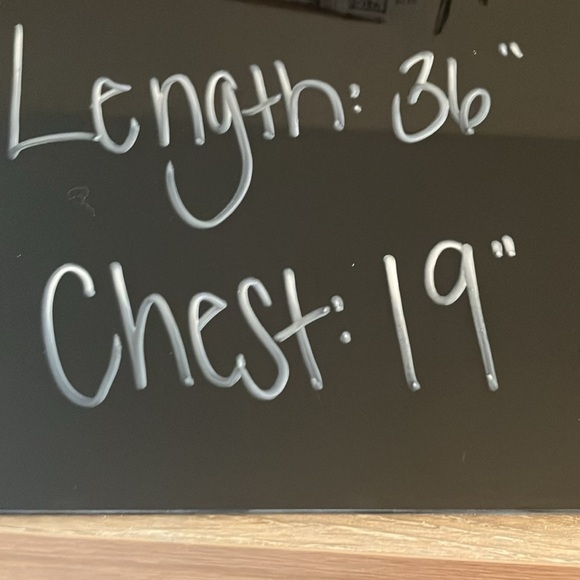 Length: 36"
Chest: 19"